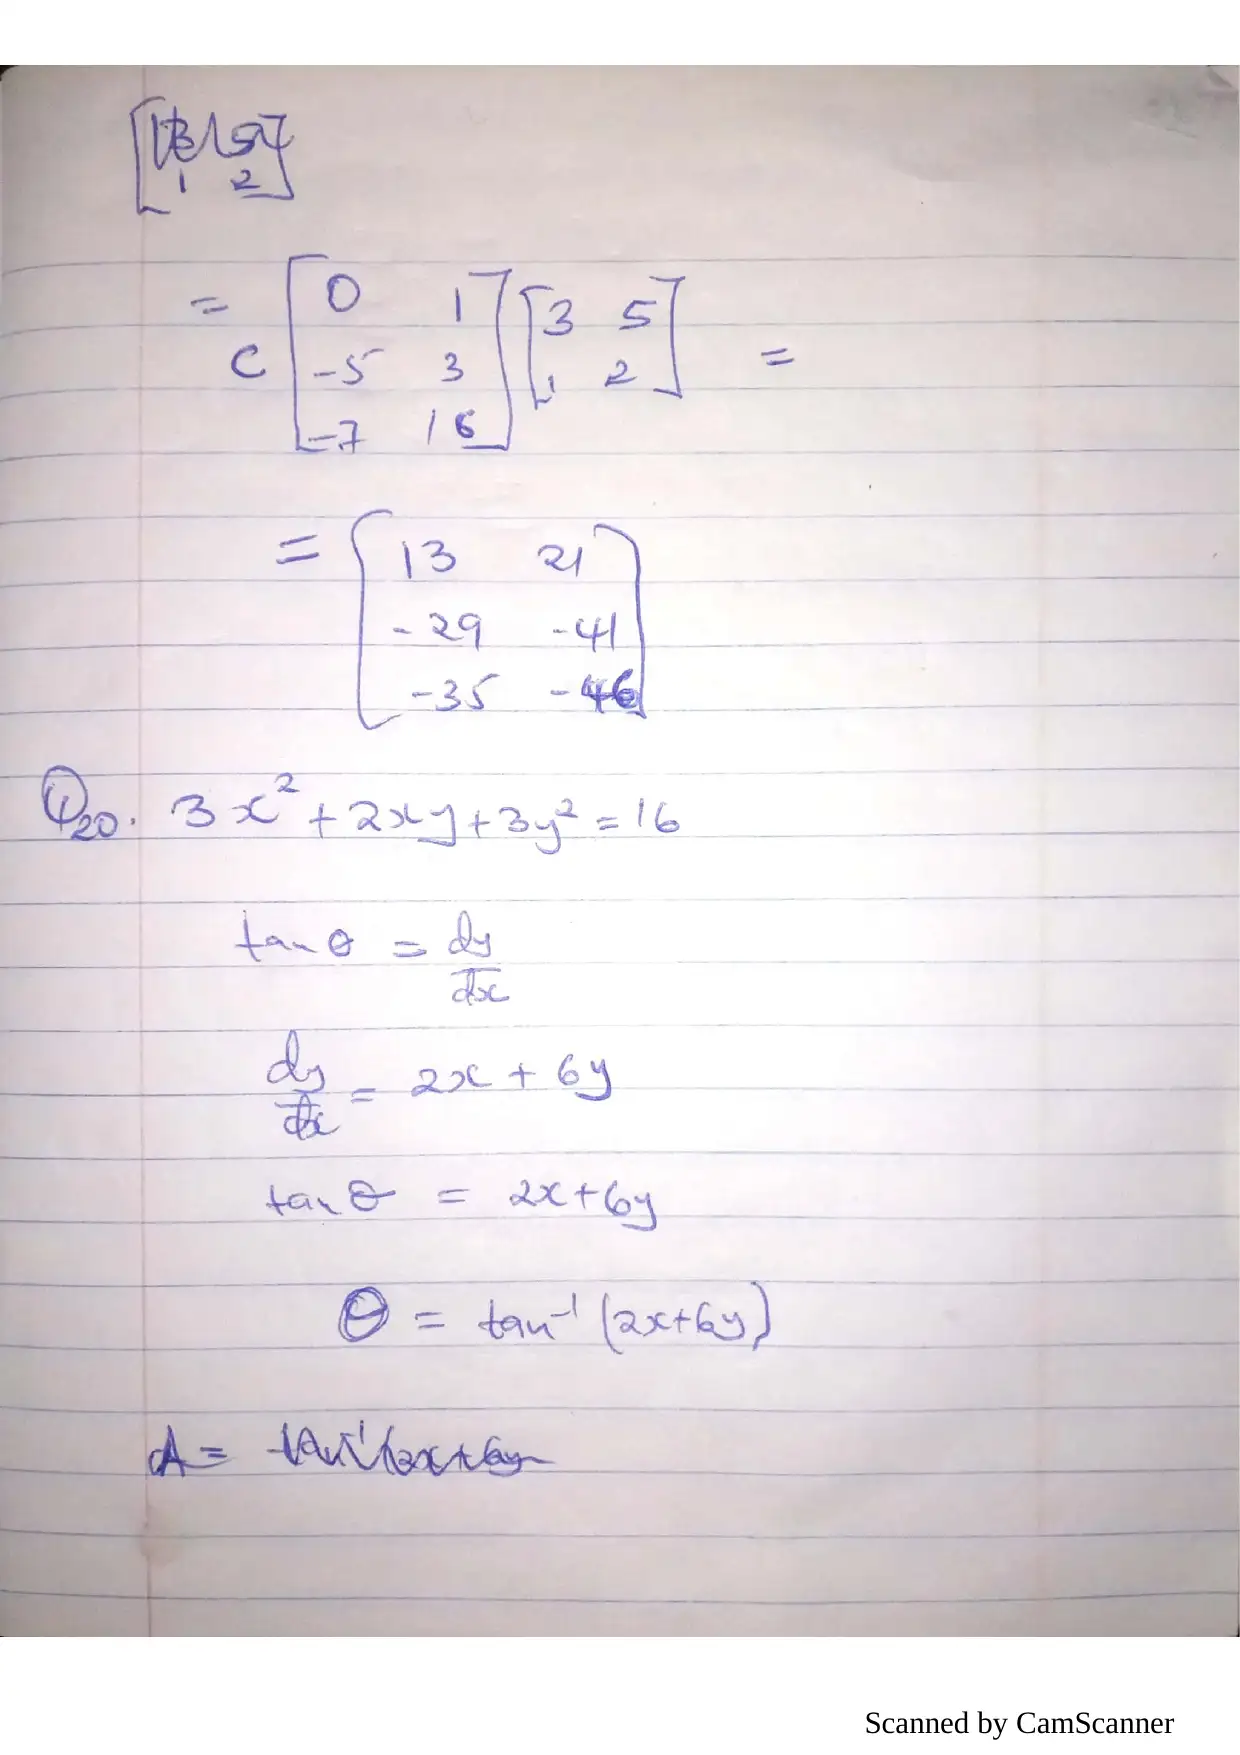 1 2
= C [0 1 -5 3 -7 16] [3 5 1 2] =
= [13 21 -29 -41 -35 -46]
Q20. 3x² + 2xy + 3y² = 16
tan θ = dy/dx
dy/dx = 2x + 6y
tan θ = 2x + 6y
θ = tan⁻¹ (2x+6y)
A = tan⁻¹(2x+6y
Scanned by CamScanner